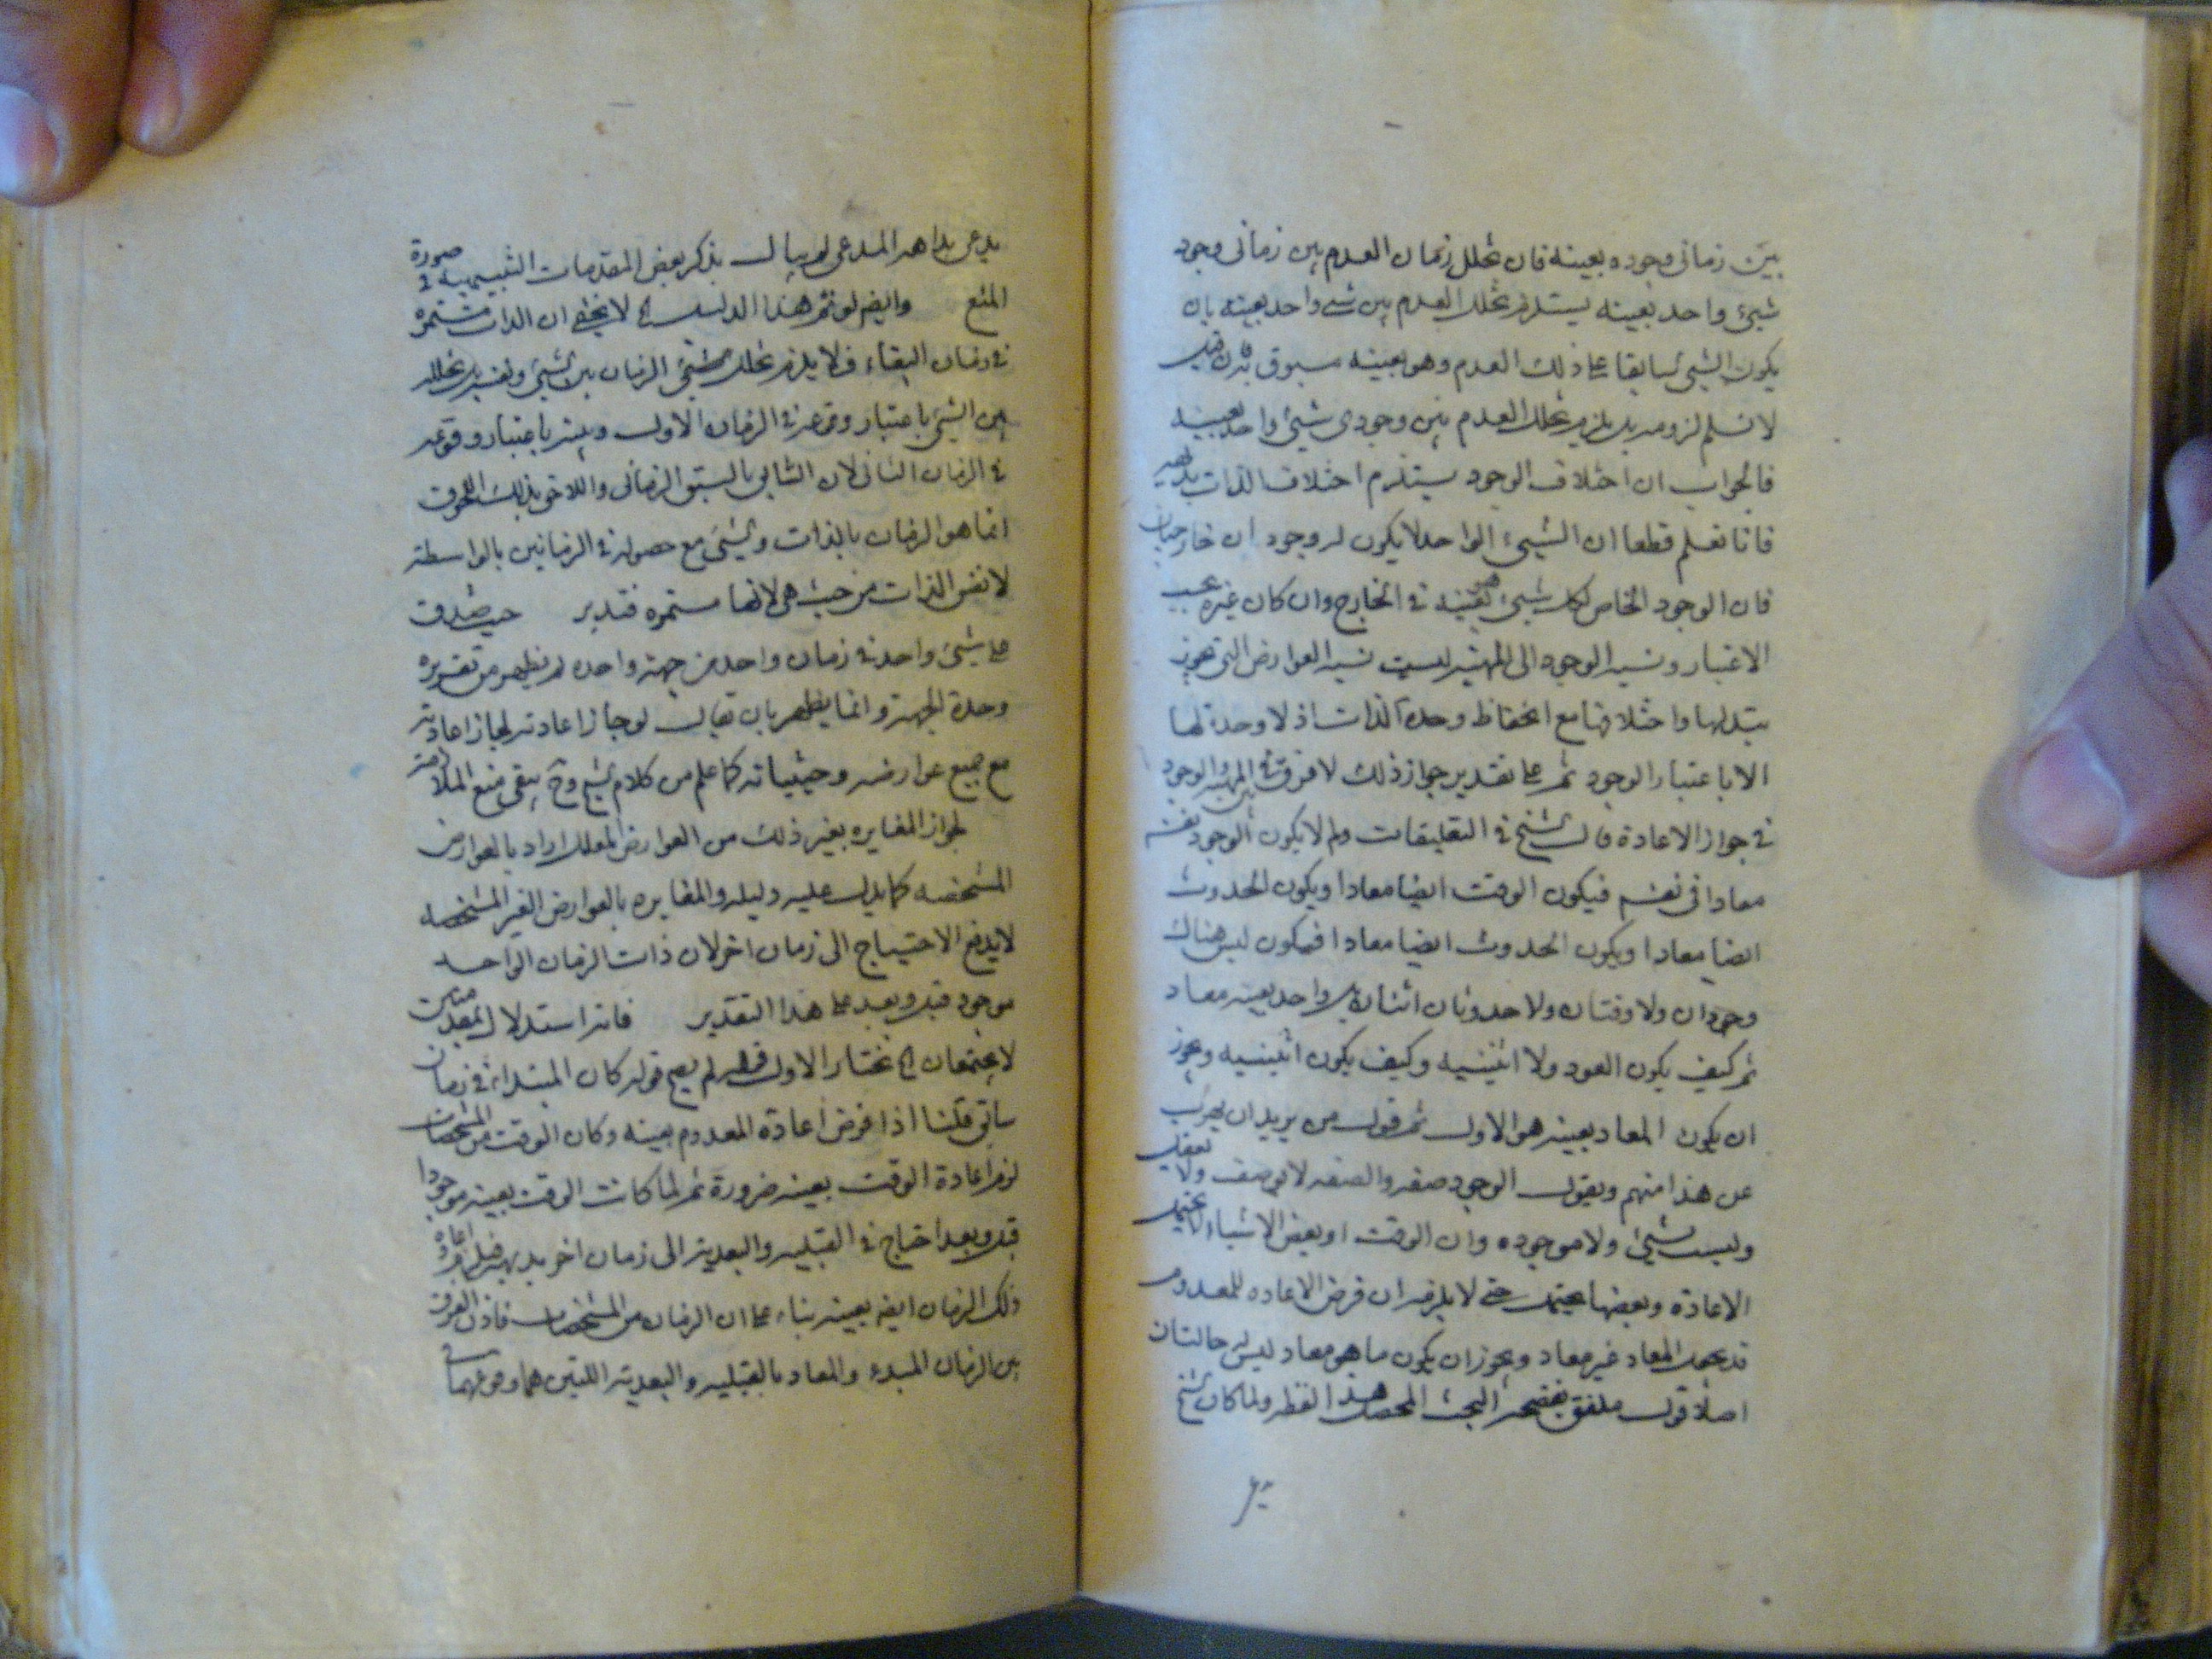 بين زمانى وجوده بعينه فان تخلل زمان العدم بين زمانى وجود
شيئ واحد بعينه يستلزم تخلل العدم بين شئ واحد بعينه بان
يكون الشيئ سابقا على ذلك العدم وهو بعينه مسبوق به فان قيل
لا نسلم لزومه بل يلزم تخلل العدم بين وجودى شيئ واحد بعينه
فالجواب ان اختلاف الوجود يستلزم اختلاف الذات بديهة
فانا نعلم قطعا ان الشيئ الواحد لا يكون له وجود ان خارجيان
فان الوجود الخاص لكل شيئ هو عينه فى الخارج وان كان غيره بحسب
الاعتبار ونسبة الوجود الى المهية ليست نسبة العوارض التى يجوز
تبدلها واختلافها مع انحفاظ وحدة الذات اذ لا وحدة لها
الا باعتبار الوجود ثم على تقدير جواز ذلك لا فرق بين المهية والوجود
فى جواز الاعادة قال الشيخ فى التعليقات ولم لا يكون الوجود نفسه
معادا فى نفسه فيكون الوقت ايضا معادا ويكون الحدوث
ايضا معادا ويكون الحدوث ايضا معادا فيكون ليس هناك
وجودان ولا وقتان ولا حدوثان اثنان بل واحد بعينه معاد
ثم كيف يكون العود ولا اثنينيه وكيف يكون اثنينيه ويجوز
ان يكون المعاد بعينه هو الاول ثم قول من يريد ان يهرب
عن هذا منهم ويقول الوجود صفه والصفه لا يوصف ولا تعقل
وليست بشيئ ولا موجوده وان الوقت او بعض الاشياء لا يحتمل
الاعادة وبعضها يحتمل حتى لا يلزمه ان فرض الاعاده للمعدوم
قد يجعل المعاد غير معاد ويجوز ان يكون ما هو معاد ليس له حالتان
اصلا قول ملفق يفضحه البحث المحصل هذا لفظه ولما كان الشيخ
يدعى بداهة المدعى لم يبال بذكر بعض المقدمات التنبيهية فى صورة
المنع وايضا لو تم هذا الدليل الخ لا يخفى ان الذات مستمره
فى زمان البقاء فلا يلزم تخلل الزمان بين الشيئ ونفسه بل تخلله
بين الشيئ باعتبار وقوعه فى الزمان الاول وبينه باعتبار وقوعه
فى الزمان الثانى لان السابق بالسبق الزمانى واللاحق بذلك اللحوق
انما هو الزمان بالذات والشيئ مع حصوله فى الزمانين بالواسطة
لا نفس الذات من حيث هى لانها مستمره فتدبر حيث صدق
على شيئ واحد فى زمان واحد من جهة واحده لم يظهر من تقريره
وحدة الجهة وانما يظهر بان يقال لو جاز اعادته لجاز اعادته
مع جميع عوارضه وحيثياته كما علم من كلام الشيخ وح يبقى منع الملازمة
لجواز المغايره بغير ذلك من العوارض لعله اراد بالعوارض
المشخصه كما يدل عليه دليله والمغايره بالعوارض الغير المشخصه
لا يدفع الاحتياج الى زمان اخر لان ذات الزمان الواحد
موجود قبل وبعد على هذا التقدير فانه استدلال بمقدمتين
لا يجتمعان الخ نختار الاول قوله لم يصح قوله كان المبتداء فى زمان
سابق قلنا اذا فرض اعادة المعدوم بعينه وكان الوقت من المشخصات
لزم اعادة الوقت بعينه ضرورة ثم لما كانت الوقت بعينه موجودا
قبل وبعد احتاج فى القبليه والبعدية الى زمان اخر بديهة فيلزم اعاده
ذلك الزمان ايضا بعينه بناء على ان الزمان من المشخصات فاذن الفرق
بين الزمان المبدء والمعاد بالقبليه والبعديه اللتين هما وقوعهما